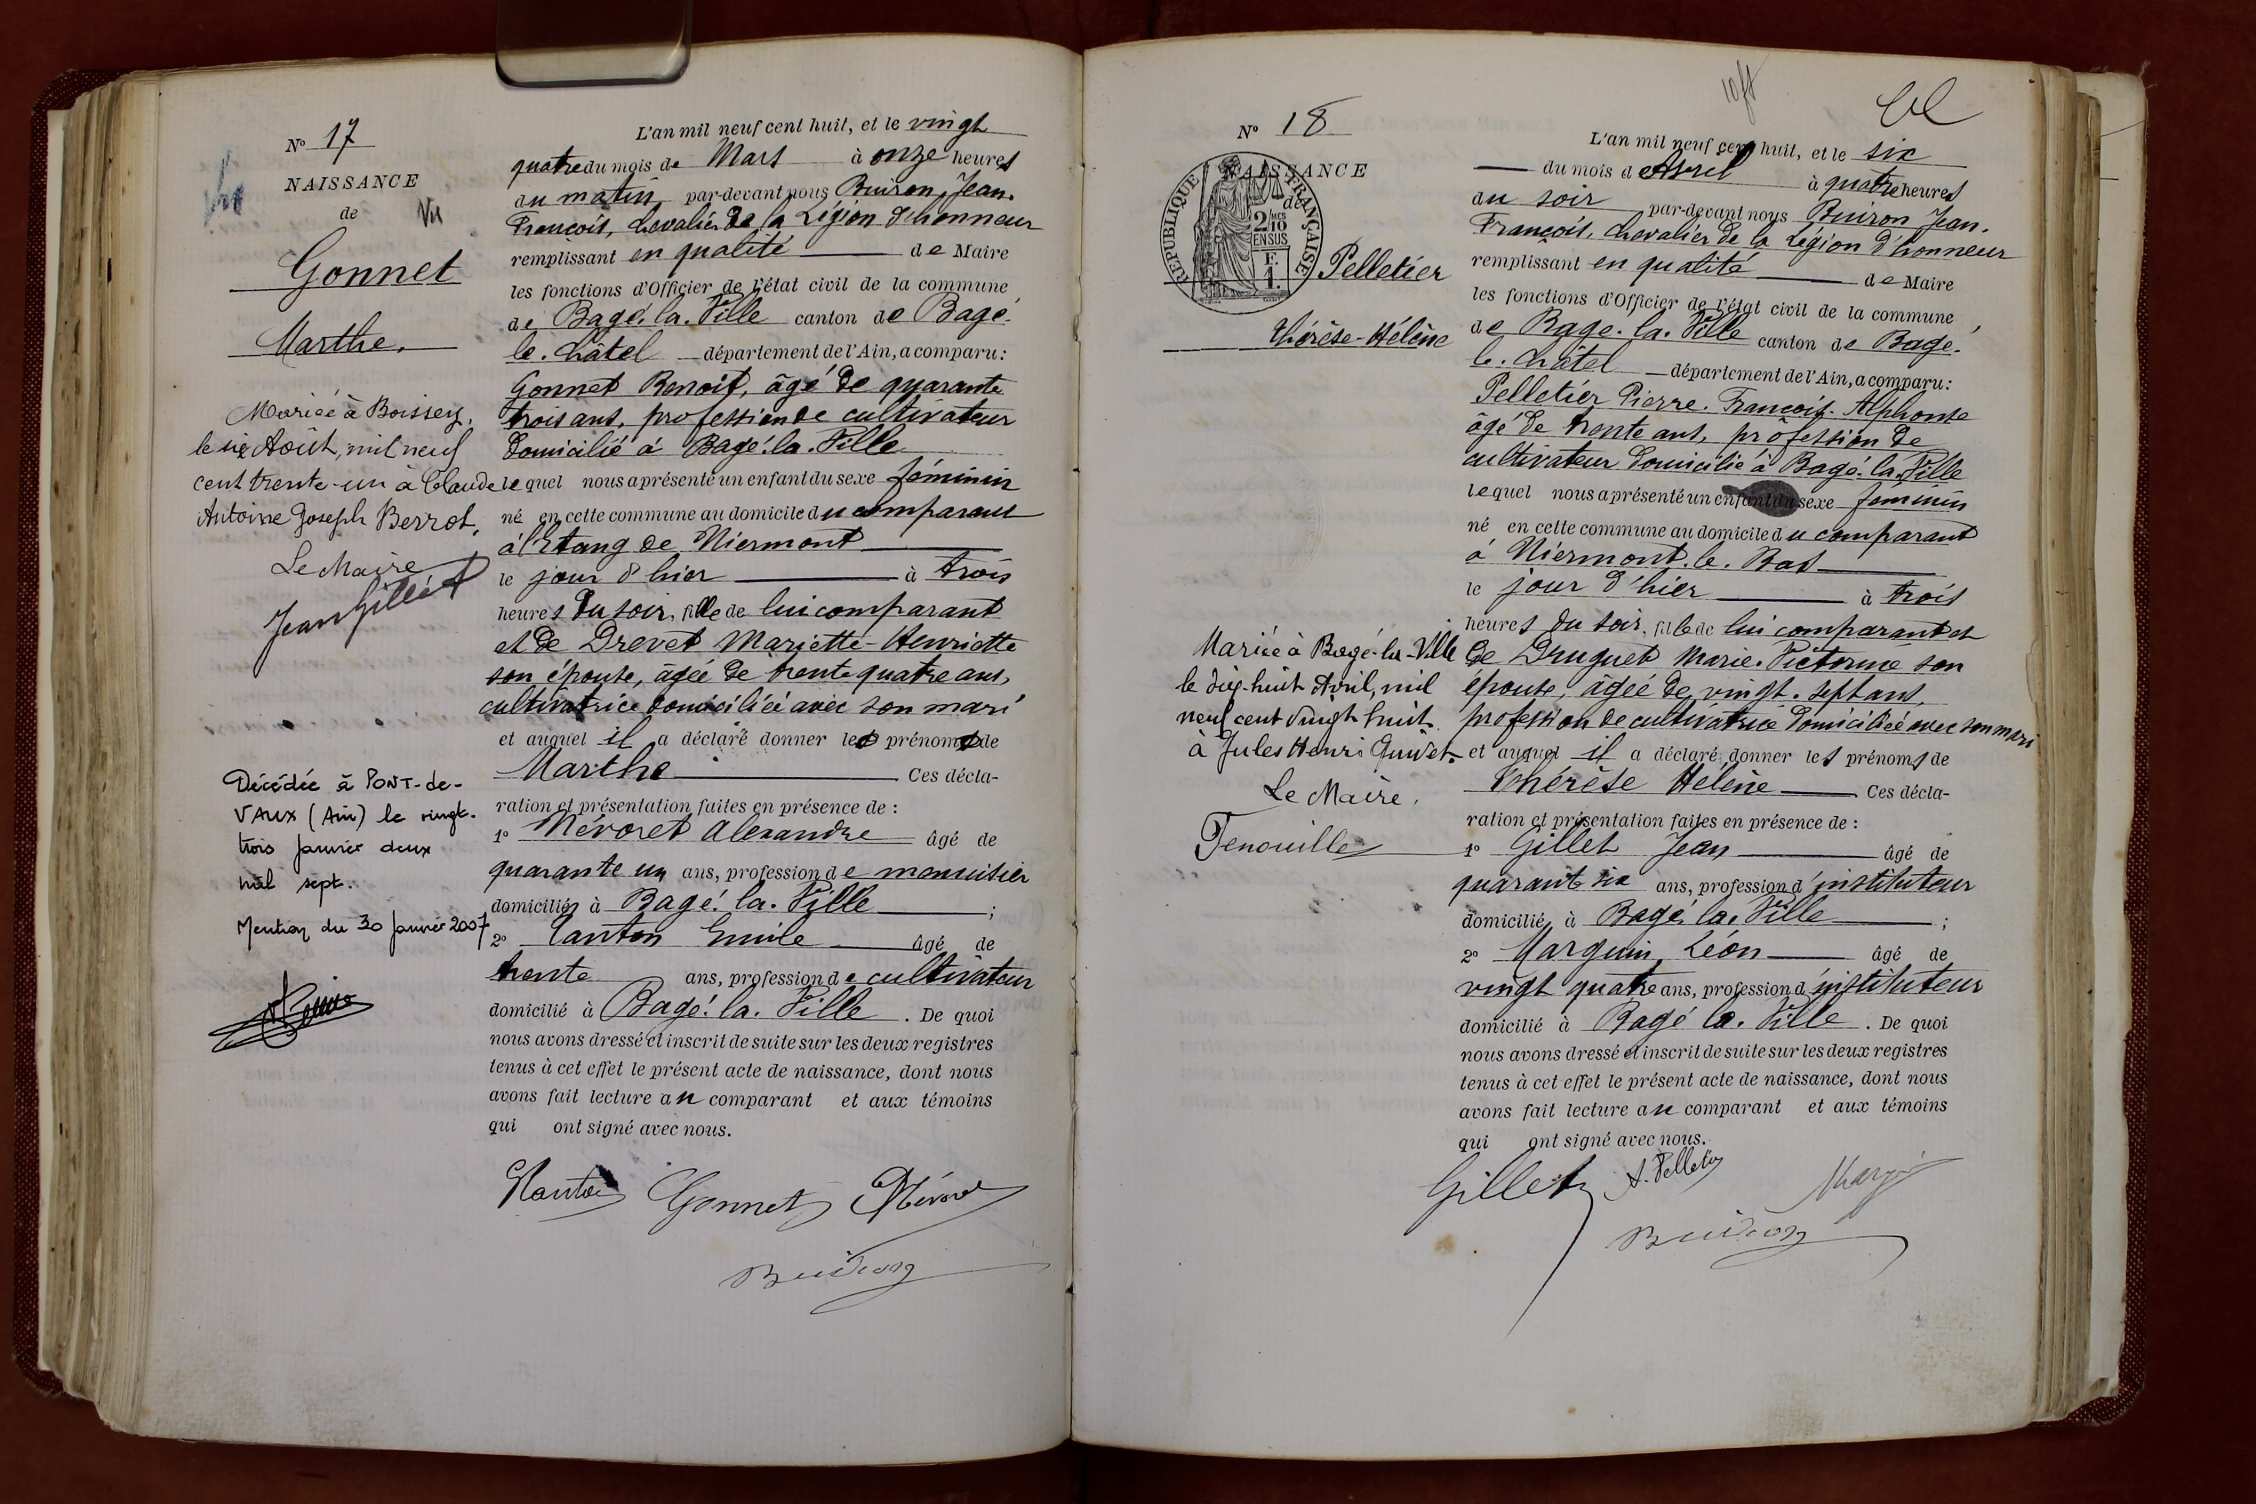 N° 17
NAISSANCE
de
Vu
Gonnet
Marthe.
Mariée à Boissey,
le six Août, mil neuf
cent trente-un à Claude
Antoine Joseph Berrot,
Le Maire
Jean Gillet
Décédée à PONT-de-
VAUX (Ain) le vingt-
trois Janvier deux
mil sept.
Mention du 30 Janvier 2007
L'an mil neuf cent huit, et le vingt
quatre du mois de Mars à onze heures
du matin par-devant nous Buiron, Jean.
François, chevalier de la Légion d'honneur
remplissant en qualité de Maire
les fonctions d'Officier de l'état civil de la commune
de Bagé. la. Ville canton de Bagé.
le. Châtel département de l'Ain, a comparu:
Gonnet Benoit, âgé de quarante
trois ans, profession de cultivateur
domicilié à Bagé. la. Ville
lequel nous a présenté un enfant du sexe féminin
né en cette commune au domicile du comparant
à l'Etang de Niermont
le jour d'hier à trois
heures du soir, fille de lui comparant
et de Drevet Mariette-Henriette
son épouse, âgée de trente quatre ans,
cultivatrice domiciliée avec son mari
et auquel il a déclaré donner les prénoms de
Marthe Ces décla-
ration et présentation faites en présence de :
1° Névoret Alexandre âgé de
quarante un ans, profession de menuisier
domicilié à Bagé. la. Ville ;
2° Tanton Emile âgé de
trente ans, profession de cultivateur
domicilié à Bagé. la. Ville. De quoi
nous avons dressé et inscrit de suite sur les deux registres
tenus à cet effet le présent acte de naissance, dont nous
avons fait lecture au comparant et aux témoins
qui ont signé avec nous.
Gonnet
Buiron
N° 18
NAISSANCE
de
REPUBLIQUE FRANÇAISE
2/10 EN SUS
F.
1.
Pelletier
Thérèse-Hélène
Mariée à Bagé-la-Ville
le dix-huit Avril, mil
neuf cent vingt huit
à Jules Henri Guivet.
Le Maire,
Fenouille
L'an mil neuf cent huit, et le six
du mois d'Avril à quatre heures
du soir par-devant nous Buiron Jean.
François. chevalier de la Légion d'honneur
remplissant en qualité de Maire
les fonctions d'Officier de l'état civil de la commune
de Bagé. la. Ville canton de Bagé.
le. Châtel département de l'Ain, a comparu:
Pelletier Pierre. François. Alphonse
âgé de trente ans, profession de
cultivateur domicilié à Bagé. la. Ville
lequel nous a présenté un enfant du sexe féminin
né en cette commune au domicile du comparant
à Niermont. le. Bas
le jour d'hier à trois
heures du soir, fille de lui comparant et
de Druguet Marie. Victorine son
épouse, âgée de vingt. sept ans,
profession de cultivatrice domiciliée avec son mari
et auquel il a déclaré donner les prénoms de
Thérèse Hélène Ces décla-
ration et présentation faites en présence de :
1° Gillet Jean âgé de
quarante six ans, profession d'instituteur
domicilié à Bagé. la. Ville ;
2° Marguin, Léon âgé de
vingt quatre ans, profession d'instituteur
domicilié à Bagé la. Ville. De quoi
nous avons dressé et inscrit de suite sur les deux registres
tenus à cet effet le présent acte de naissance, dont nous
avons fait lecture au comparant et aux témoins
qui ont signé avec nous.
Gillet A. Pelletier
Buiron